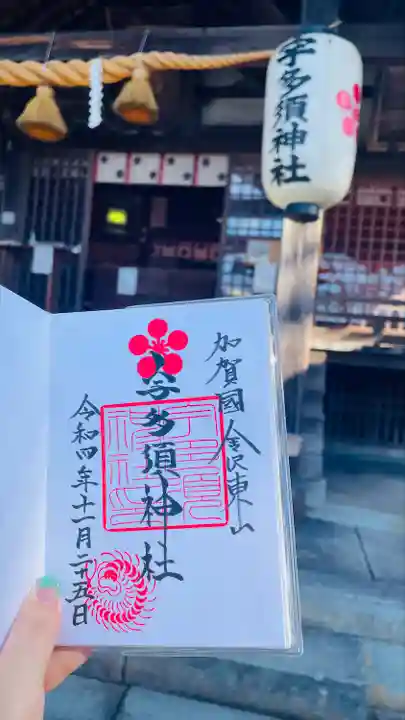 宇多須神社
加賀國金沢東山
宇多須神社
令和四年十一月二十五日